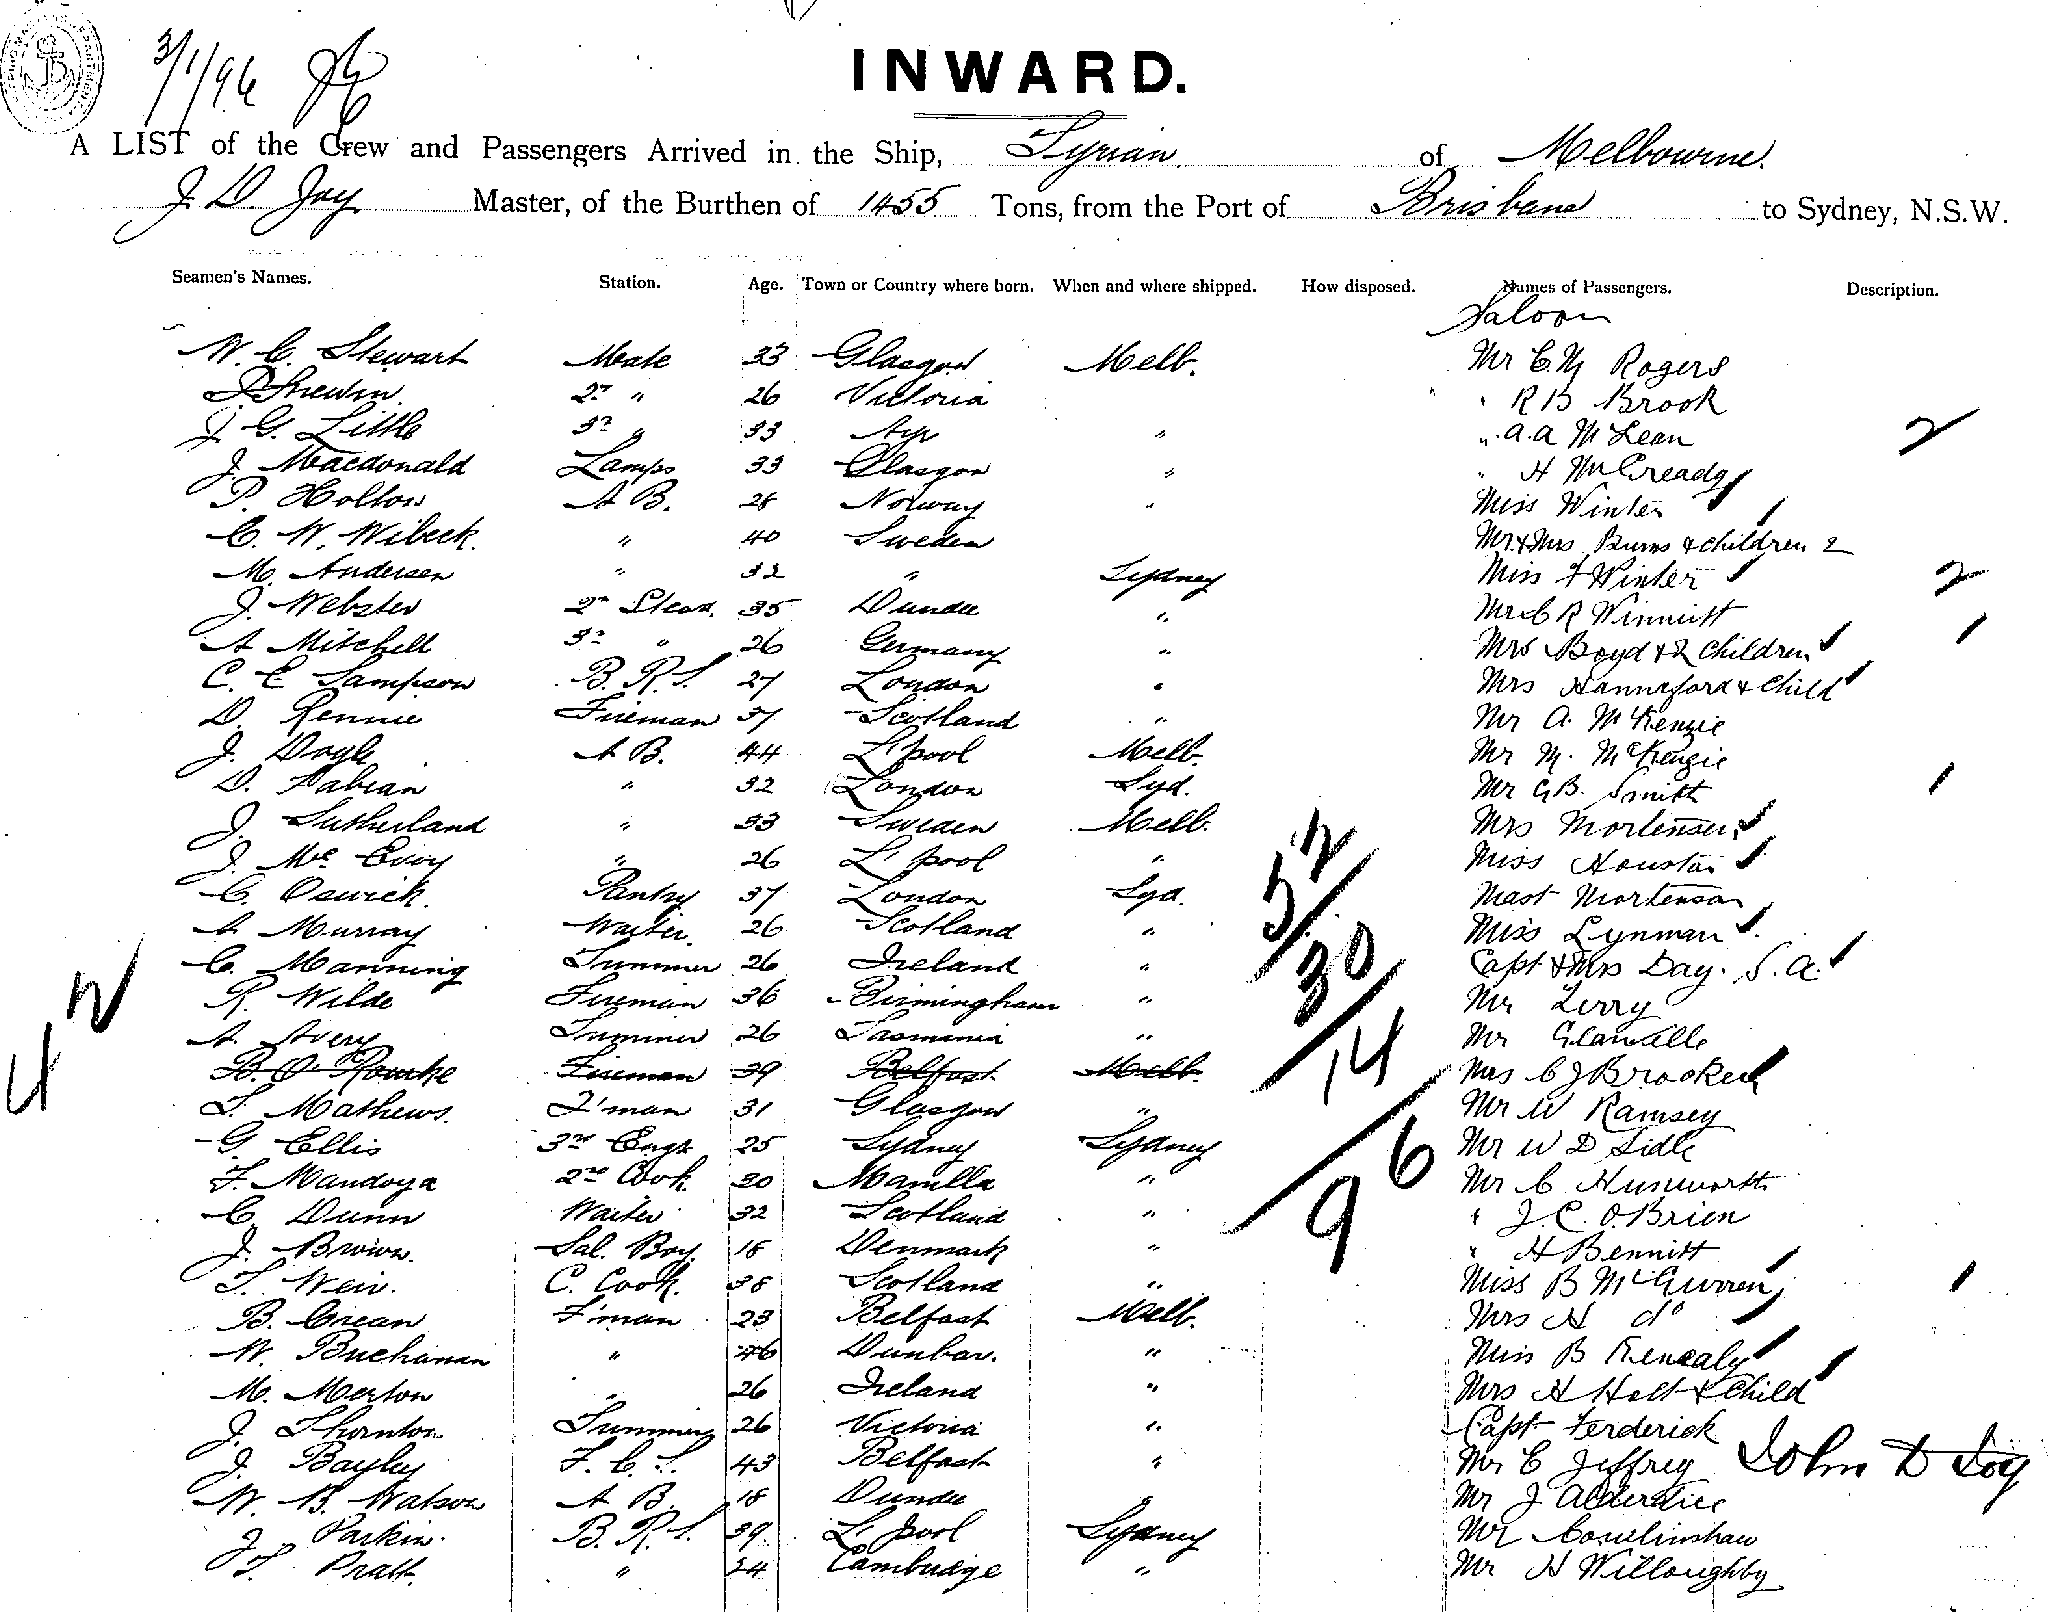 3/1/96
INWARD.
A LIST of the Crew and Passengers Arrived in the Ship, Syrian of Melbourne.
J. D. Joy Master, of the Burthen of 1455 Tons, from the Port of Brisbane to Sydney, N.S.W.
Seamen's Names. Station. Age. Town or Country where born. When and where shipped. How disposed. Names of Passengers. Description.
Saloon
W. C. Stewart Mate 33 Glasgow Melb. Mr C. M Rogers
2nd " 26 Victoria " R B Brook
J. G. Little 3rd " 33 Ayr " " A. A McLean 2
J. Macdonald Lamps 33 Glasgow " " H McCready
P. Holton A B. 28 Norway " Miss Winter
C. W. Wibeck. " 40 Sweden Mr & Mrs Burns & children 2
M. Andersen " 32 " Sydney Miss F Winter 2
J. Webster 2nd Stew. 35 Dundee " Mr C R Winnitt
A Mitchell 3rd " 26 Germany " Mrs Boyd & 2 children 1
C. E Sampson B. R. S. 27 London " Mrs Hannaford & Child
D. Rennie Fireman 37 Scotland " Mr A. McKenzie
J. Doyle A B. 44 L'pool Melb. Mr M. McKenzie
D. Fabian " 32 London Syd. Mr G B. Smith 1
J. Sutherland " 33 Sweden Melb. Mrs Mortensen
J. Mc Evoy " 26 L'pool " Miss Houston
C. Oswick. Pantry 37 London Syd. Mast Mortenson
A Murray Waiter. 26 Scotland " Miss Lynman
C. Manning Trimmer 26 Ireland " Capt & Mrs Day. S. A.
R. Wilde Fireman 36 Birmingham " Mr Terry
A. Avery Trimmer 26 Tasmania " Mr
B. O' Rourke Fireman 39 Belfast Melb. Mrs C J Brooker
T. Mathews. F'man 31 Glasgow " Mr W Ramsey
G Ellis 3rd Engr 25 Sydney Sydney Mr W D Sidle
F. Mandoya 2nd Cook. 30 Manilla " Mr C Hunworth
C. Dunn Waiter 32 Scotland " " J. C. O'Brien
J. Brown. Sal. Boy. 18 Denmark " " H Bennitt
T. Weir. C. Cook. 38 Scotland " Miss B McGivren 1
B. Crean F'man 23 Belfast Melb. Mrs H do
W. Buchanan " 46 Dunbar. " Miss B Kenealy
M. Merton " 26 Ireland " Mrs H Holt & Child
J. Thornton Trimmer 26 Victoria " Capt Ferderick
J. Bayley F. C. S. 43 Belfast " Mr C Jeffrey John D Joy
W. B. Watson A B. 18 Dundee " Mr J Alderdice
J. Parkin. B. R. S. 39. L'pool Sydney Mr
T. Pratt. " 24 Cambridge " Mr H Willoughby
42
52
30
14
96